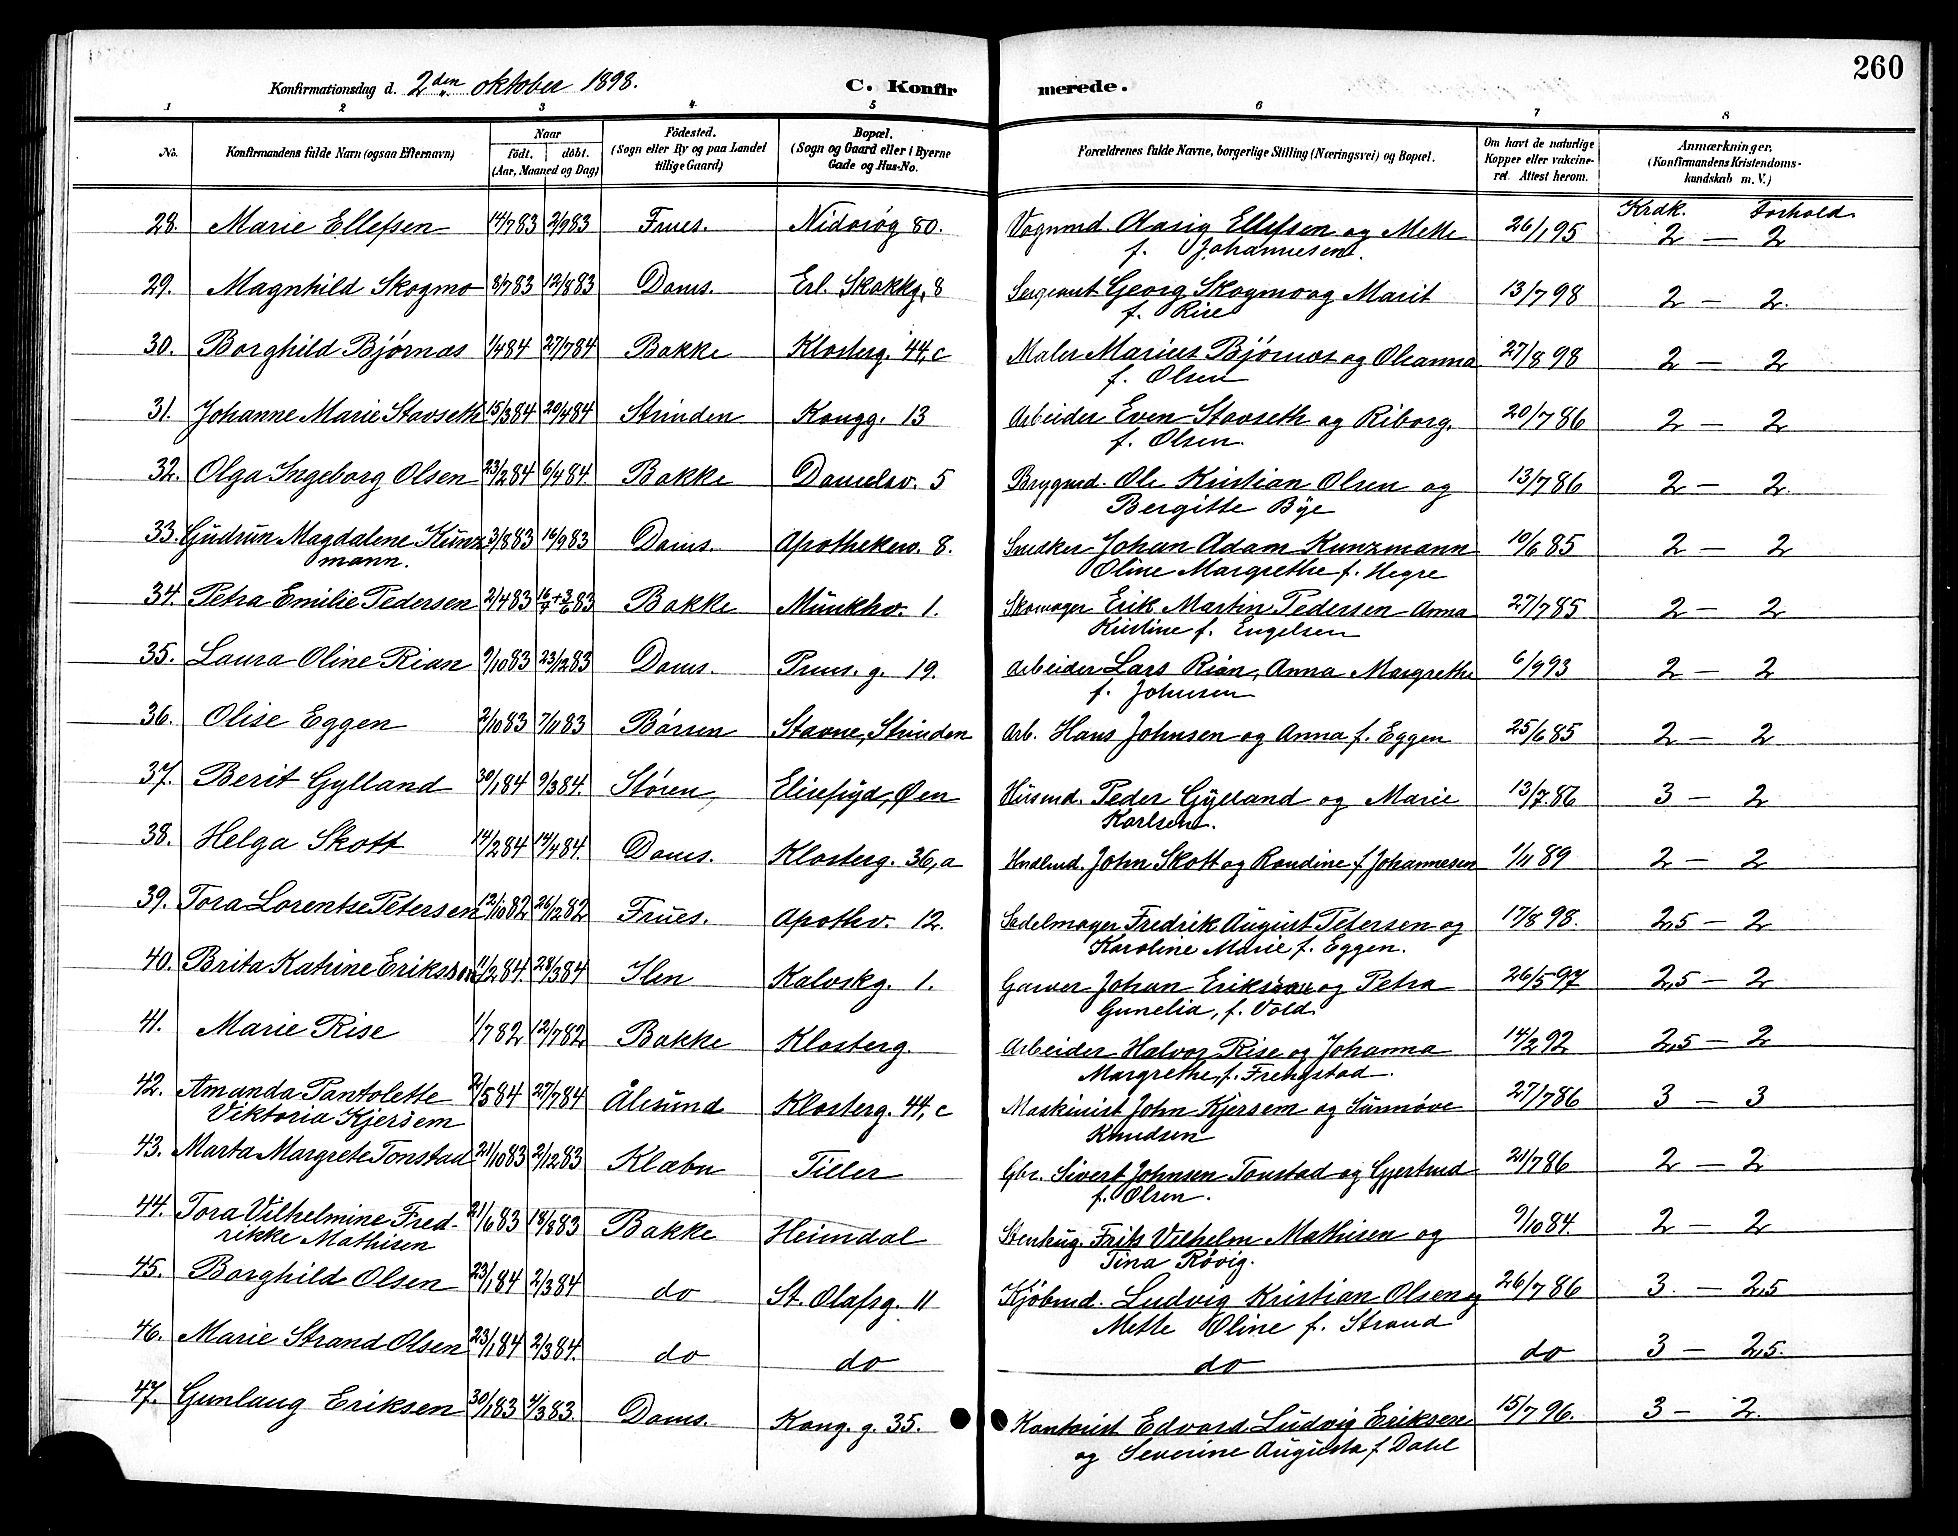 260
Konfirmationsdag d. 2den oktober 1898. C. Konfirmerede.
1 2 3 4 5 6 7 8
No. Konfirmandens fulde Navn (ogsaa Efternavn) Naar födt. döbt. (Aar, Maaned og Dag) Födested. (Sogn eller By og paa Landet tillige Gaard) Bopæl. (Sogn og Gaard eller i Byerne Gade og Hus-No. Forældrenes fulde Navne, borgerlige Stilling (Næringsvei) og Bopæl. Om havt de naturlige Kopper eller vakcineret. Attest herom. Anmærkninger. (Konfirmandens Kristendomskundskab m. V.)
Krdk. Forhold.
28. Marie Ellefsen 14/7 83 2/9 83 Frues. Nidarög 80. Vognmd. Aasig Ellefsen og Mette 26/1 95 2 — 2
f. Johannesen.
29. Magnhild Skogmo 8/7 83 12/8 83 Doms. Erl. Skakkg. 8 Sergeant Georg Skogmo og Marit 13/7 98 2 — 2.
f. Rise
30. Borghild Bjørnas 1/4 84 27/7 84 Bakke Klosterg. 44, c Maler Marius Bjørnas og Oleanna 27/8 98 2 — 2
f. Olsen
31. Johanne Marie Stavseth 15/3 84 20/4 84 Strinden Kongg. 13 Arbeider Even Stavseth og Riborg. 20/7 86 2 — 2
f. Olsen.
32. Olga Ingeborg Olsen 23/2 84 6/4 84. Bakke Danielsv. 5 Brygmd. Ole Kristian Olsen og 13/7 86 2 — 2.
Bergitte Bye
33. Gudrun Magdalene Kunz 3/8 83 16/9 83 Doms. Apothekerv. 8. Snedker Johan Adam Kunzmann 10/6 85 2 — 2
mann. Oline Margrethe f. Hegre
34. Petra Emilie Pedersen 2/4 83 Bakke Munkhv. 1. Skomager Erik Martin Pedersen Anna 27/7 85 2 — 2
Kristine f. Engelsen
35. Laura Oline Rian 9/10 83 23/12 83 Doms. Prins. g. 19. Arbeider Lars Rian, Anna Margrethe 6/9 93 2 — 2
f. Johnsen
36. Olise Eggen 2/10 83 7/11 83 Börsen Stavne, Strinden Arb. Hans Johnsen og Anna f. Eggen 25/6 85 2 — 2
37. Berit Gylland 30/1 84 9/3 84. Støren, Øen Husmd. Peder Gylland og Marie 13/7 86 3 — 2
Karlsen.
38. Helga Skott 14/2 84 14/4 84. Doms. Klosterg. 36, a Hndlmd. John Skott og Randine f. Johannesen 1/11 89 2 — 2
39. Tora Lorentse Petersen 12/10 82 26/12 82 Frues. Apothv. 12. Sadelmager Fredrik August Petersen og 17/8 98. 2,5 — 2
Karoline Marie f. Eggen.
40. Brita Katrine Eriksson 11/2 84. 28/3 84 Ilen Kalvskg. 1. Garver Johan Eriksson og Petra 26/5 97 2,5 — 2
Gunelia, f. Vold.
41. Marie Rise 1/7 82 12/7 82. Bakke Klosterg. Arbeider Halvor Rise og Johanna 14/2 92 2,5 — 2
Margrethe, f. Frengstad.
42. Amanda Pantolette 2/5 84 27/7 84 Ålesund Klosterg. 44, c Maskinist John Kjersem og Sünnøve 27/7 86 3 — 3
Viktoria Kjersem Knudsen
43. Marta Margrete Tonstad 21/10 83 2/12 83 Klæbu Tiller Gbr. Sivert Johnsen Tonstad og Gjertrud 21/7 86 2 — 2
f. Olsen.
44. Tora Vilhelmine Fred- 21/6 83 18/8 83 Bakke Heimdal Stenhug. Frits Vilhelm Mathisen og 9/10 84. 2 — 2
rikke Mathisen Tina Røvig.
45. Borghild Olsen 23/1 84 2/3 84 do St. Olafsg. 11 Kjöbmd. Ludvig Kristian Olsen og 26/7 86 3. — 2,5
Mette Oline f. Strand
46. Marie Strand Olsen 23/1 84 2/3 84. do do do do 3 — 2,5.
47. Gunlaug Eriksen 30/1 83 4/3 83. Doms. Kong. g. 35. Kontorist Edvard Ludvig Eriksen 15/7 96. 3 — 2.
og Severine Augusta f. Dahl